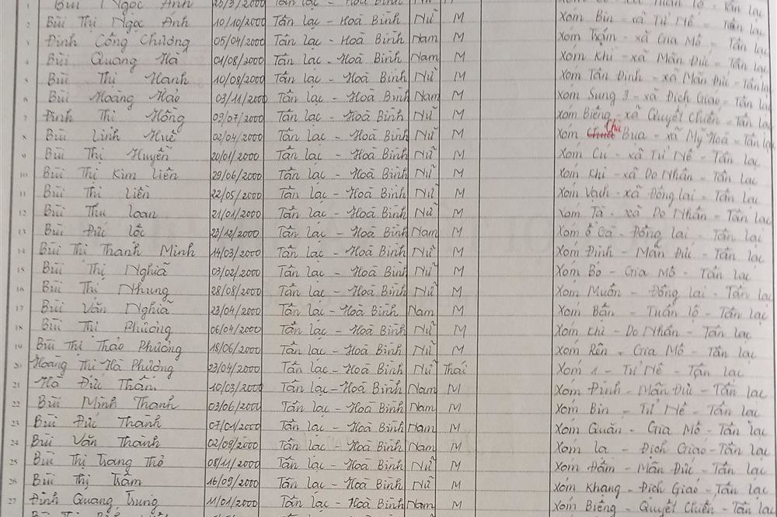 1 Bùi Ngọc Anh /2000 Tân lạc - Hoà Bình Tân lạc
2 Bùi Thị Ngọc Anh 10/10/2000 Tân lạc - Hoà Bình Nữ M Xóm Bin - xã Tử Nê - Tân lạc
3 Đinh Công Chương 05/04/2000 Tân lạc - Hoà Bình Nam M Xóm Trám - xã Gia Mô - Tân lạc
4 Bùi Quang Hà 01/08/2000 Tân lạc - Hoà Bình Nam M Xóm Khi - xã Mãn Đức - Tân lạc
5 Bùi Thị Hanh 10/08/2000 Tân lạc - Hoà Bình Nữ M Xóm Tân Định - xã Mãn Đức - Tân lạc
6 Bùi Hoàng Hảo 03/11/2000 Tân lạc - Hoà Bình Nam M Xóm Sung 3 - xã Địch Giáo - Tân lạc
7 Đinh Thị Hồng 09/07/2000 Tân lạc - Hoà Bình Nữ M Xóm Biệng - xã Quyết Chiến - Tân lạc
8 Bùi Linh Huệ 02/04/2000 Tân lạc - Hoà Bình Nữ M Xóm Bua - xã Mỹ Hoà - Tân lạc
9 Bùi Thị Huyền 20/01/2000 Tân lạc - Hoà Bình Nữ M Xóm Cú - xã Tử Nê - Tân lạc
10 Bùi Thị Kim Liên 29/06/2000 Tân lạc - Hoà Bình Nữ M Xóm Khi - xã Do Nhân - Tân lạc
11 Bùi Thị Liên 22/05/2000 Tân lạc - Hoà Bình Nữ M Xóm Vạch - xã Đông lai - Tân lạc
12 Bùi Thu Loan 21/01/2000 Tân lạc - Hoà Bình Nữ M Xóm Tà - xã Do Nhân - Tân lạc
13 Bùi Đức Lộc 23/12/2000 Tân lạc - Hoà Bình Nam M Xóm ổ Cả - Đông lai - Tân lạc
14 Bùi Thị Thanh Minh 14/03/2000 Tân lạc - Hoà Bình Nữ M Xóm Đinh - Mãn Đức - Tân lạc
15 Bùi Thị Nghiã 03/02/2000 Tân lạc - Hoà Bình Nữ M Xóm Bo - Gia Mô - Tân lạc
16 Bùi Thị Nhung 28/08/2000 Tân lạc - Hoà Bình Nữ M Xóm Muôn - Đông lai - Tân lạc
17 Bùi Văn Nghiã 23/04/2000 Tân lạc - Hoà Bình Nam M Xóm Bản - Tuân lộ - Tân lạc
18 Bùi Thị Phương 06/04/2000 Tân lạc - Hoà Bình Nữ M Xóm Khi - Do Nhân - Tân lạc
19 Bùi Thị Thảo Phương 18/06/2000 Tân lạc - Hoà Bình Nữ M Xóm Rên - Gia Mô - Tân lạc
20 Hoàng Thị Hà Phương 23/04/2000 Tân lạc - Hoà Bình Nữ Thái Xóm 1 - Tử Nê - Tân lạc
21 Hà Đức Thân 10/03/2000 Tân lạc - Hoà Bình Nam M Xóm Đinh - Mãn Đức - Tân lạc
22 Bùi Minh Thanh 03/06/2000 Tân lạc - Hoà Bình Nam M Xóm Bin - Tử Nê - Tân lạc
23 Bùi Đức Thành 07/01/2000 Tân lạc - Hoà Bình Nam M Xóm Quăn - Gia Mô - Tân lạc
24 Bùi Văn Thành 02/09/2000 Tân lạc - Hoà Bình Nam M Xóm la - Địch Giáo - Tân lạc
25 Bùi Thị Trang Thơ 08/11/2000 Tân lạc - Hoà Bình Nữ M Xóm Đầm - Mãn Đức - Tân lạc
26 Bùi Thị Trâm 16/09/2000 Tân lạc - Hoà Bình Nữ M Xóm Khạng - Địch Giáo - Tân lạc
27 Đinh Quang Trung 11/01/2000 Tân lạc - Hoà Bình Nam M Xóm Biệng - Quyết Chiến - Tân lạc